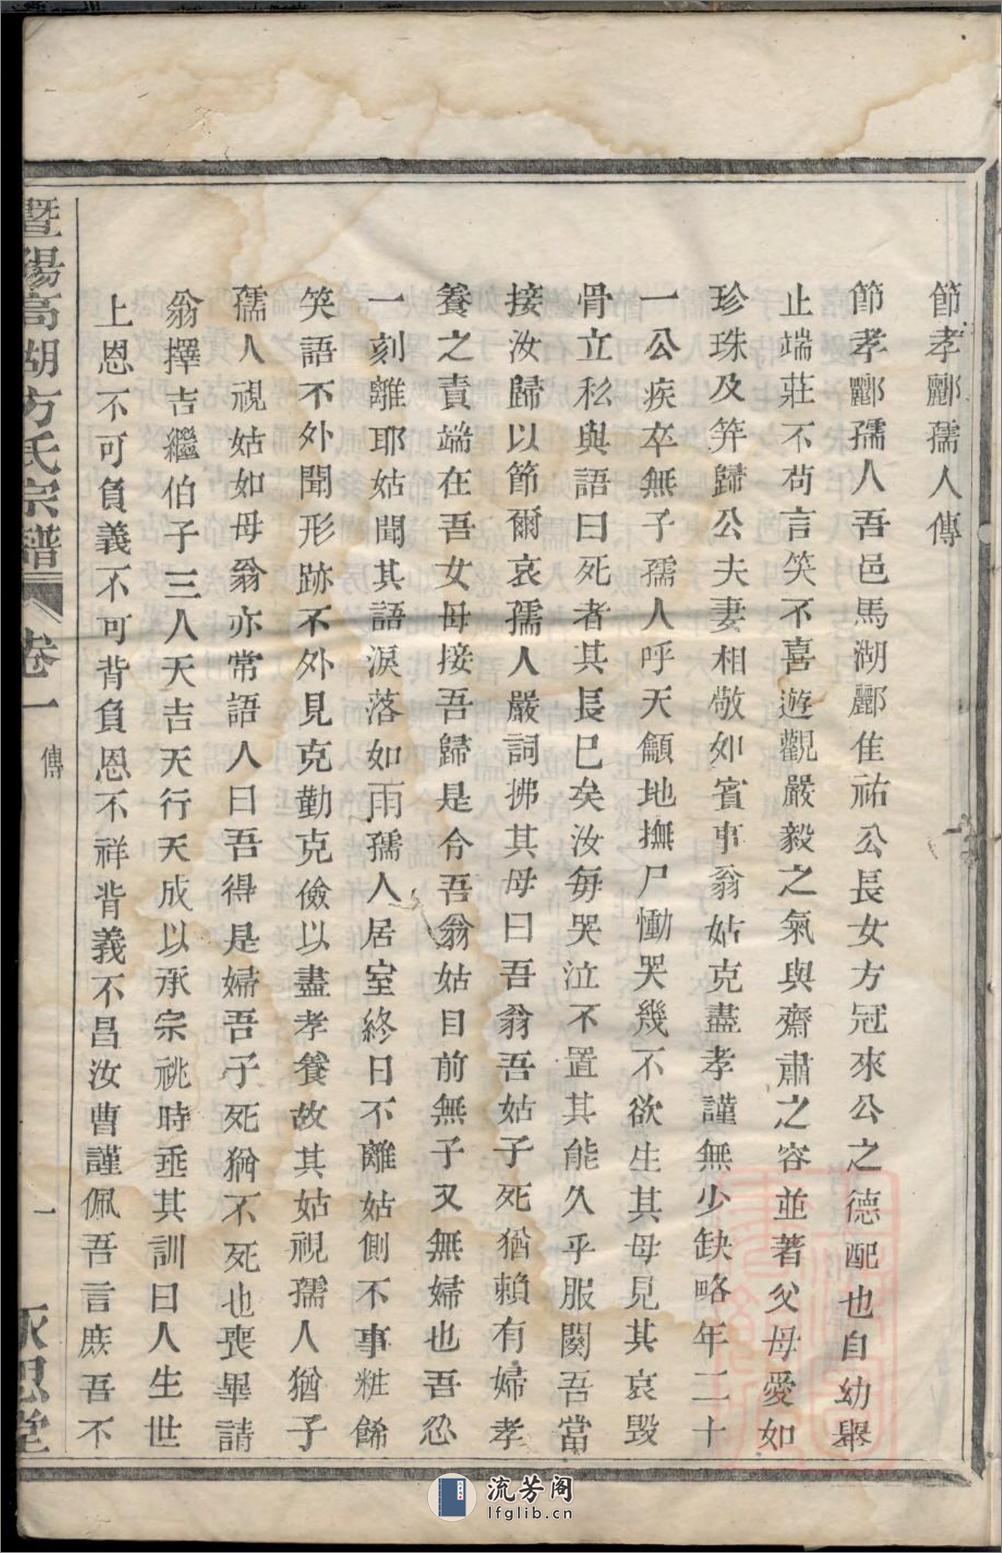 節孝酈孺人傳
節孝酈孺人吾邑馬湖酈隹祐公長女方冠來公之德配也自幼舉
止端莊不苟言笑不喜遊觀嚴毅之氣與齋肅之容並著父母愛如
珍珠及笄歸公夫妻相敬如賓事翁姑克盡孝謹無少缺略年二十
一公疾卒無子孺人呼天籲地撫尸慟哭幾不欲生其母見其哀毀
骨立私與語曰死者其長已矣汝每哭泣不置其能久乎服闋吾當
接汝歸以節爾哀孺人嚴詞拂其母曰吾翁吾姑子死猶賴有婦孝
養之責端在吾女母接吾歸是令吾翁姑目前無子又無婦也吾忍
一刻離耶姑聞其語淚落如雨孺人居室終日不離姑側不事粧餙
笑語不外聞形跡不外見克勤克儉以盡孝養故其姑視孺人猶子
孺人視姑如母翁亦常語人曰吾得是婦吾子死猶不死也喪畢請
翁擇吉繼伯子三人天吉天行天成以承宗祧時埀其訓曰人生世
上恩不可負義不可背負恩不祥背義不昌汝曹謹佩吾言庻吾不
暨陽高湖方氏宗譜 卷一 傳 一 永思堂
流芳阁
lfglib.cn